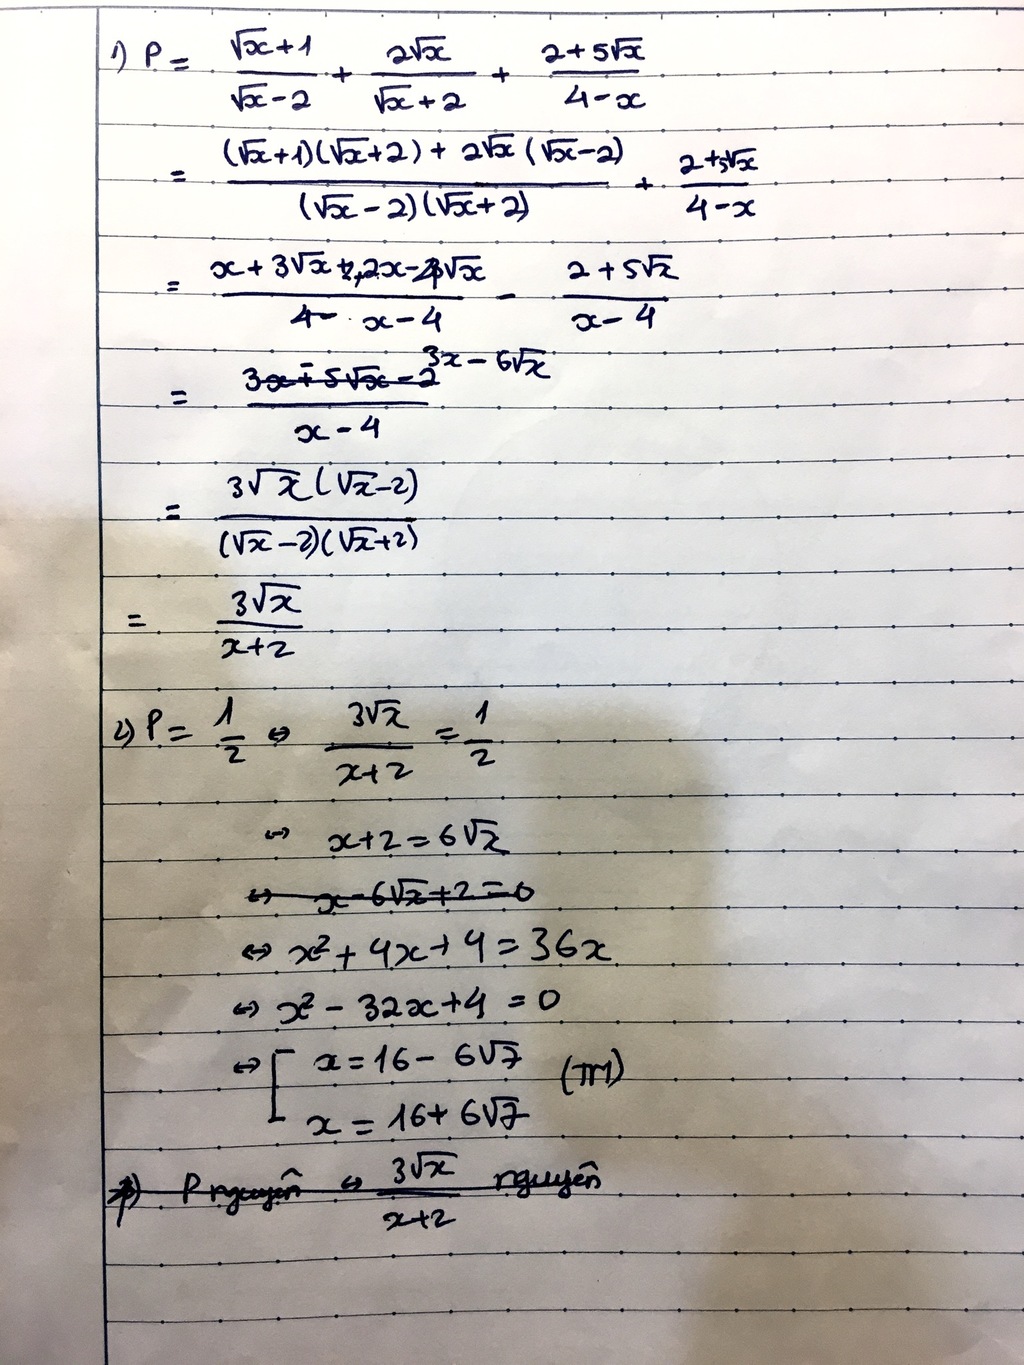 1) P = (√x+1)/(√x-2) + 2√x/(√x+2) + (2+5√x)/(4-x)
= ((√x+1)(√x+2) + 2√x(√x-2))/((√x-2)(√x+2)) + (2+5√x)/(4-x)
= (x+3√x+2+2x-4√x)/(x-4) - (2+5√x)/(x-4)
= (3x-6√x)/(x-4)
= 3√x(√x-2)/((√x-2)(√x+2))
= 3√x/(x+2)
2) P = 1/2 ⇔ 3√x/(x+2) = 1/2
⇔ x+2 = 6√x
⇔ x-6√x+2=0
⇔ x²+4x+4=36x
⇔ x²-32x+4=0
⇔ [ x=16-6√7 (TM)
x=16+6√7
P nguyên ⇔ 3√x/(x+2) nguyên